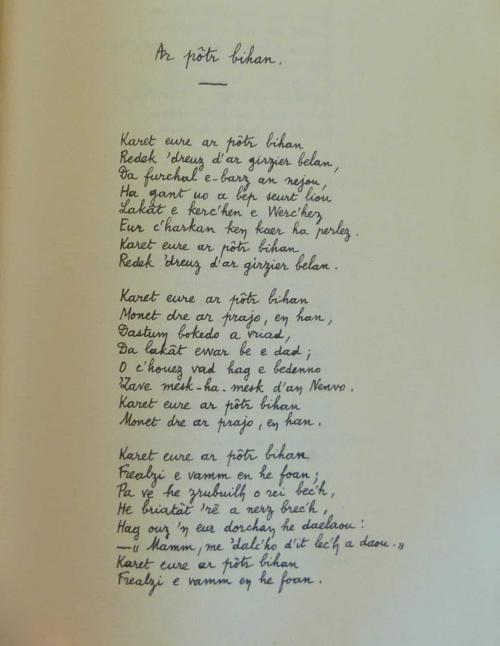 Ar pôtr bihan.
Karet eure ar pôtr bihan
Redek 'dreuz d'ar girzier belan,
Da furchal e-barz an nejou,
Ha gant uo a bep seurt liou
Lakât e kerc'hen e Werc'hez
Eur c'harkan ken kaer ha perlez.
Karet eure ar pôtr bihan
Redek 'dreuz d'ar girzier belan.
Karet eure ar pôtr bihan
Monet dre ar prajo, en han,
Dastum bokedo a vriad,
Da lakât ewar be e dad;
O c'houez vad hag e bedenno
'Zave mesk-ha-mesk d'an Nenvo.
Karet eure ar pôtr bihan
Monet dre ar prajo, en han.
Karet eure 'ar pôtr bihan
Frealzi e vamm en he foan;
Pa ve he zrubuilh o rei bec'h,
He briatât 'rê a nerz brec'h,
Hag ouz 'n eur dorchan he daelaou:
—„ Mamm, me 'dalc'ho d'it lec'h a daou.„
Karet eure ar pôtr bihan
Frealzi e vamm en he foan.